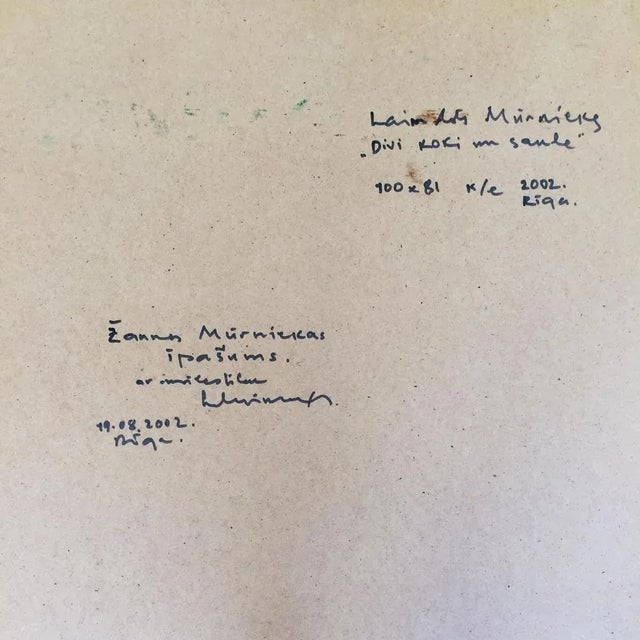 Laimdots Mūrnieks
„Divi koki un saule"
100x81 k/e 2002.
Rīga.
Žannas Mūrniekas
īpašums.
ar mīlestību
19.08.2002.
Rīga.